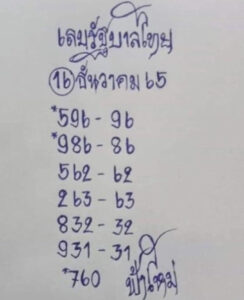 เลขรัฐบาลไทย
16 ธันวาคม 65
*596 - 96
*986 - 86
562 - 62
263 - 63
832 - 32
931 - 31
*760 ฟ้าใหม่